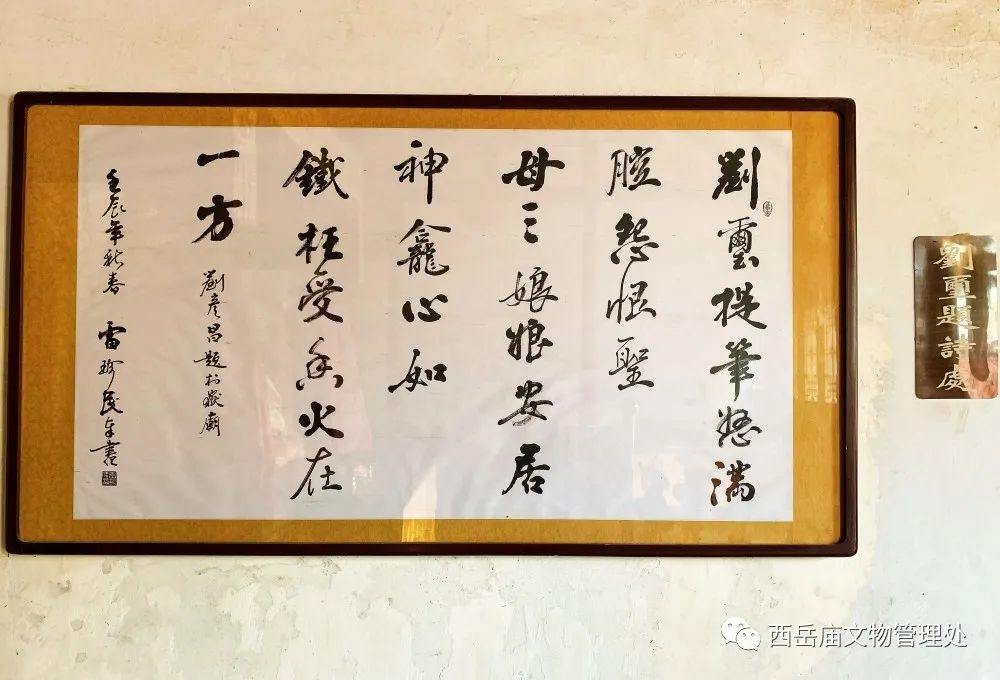 劉璽提筆怒滿
腔怨恨聖
母三娘娘安居
神龕心如
鐵枉受香火在
一方
劉彦昌題於嶽廟
壬辰年新春 雷珍民 書
劉璽題詩處
西岳庙文物管理处